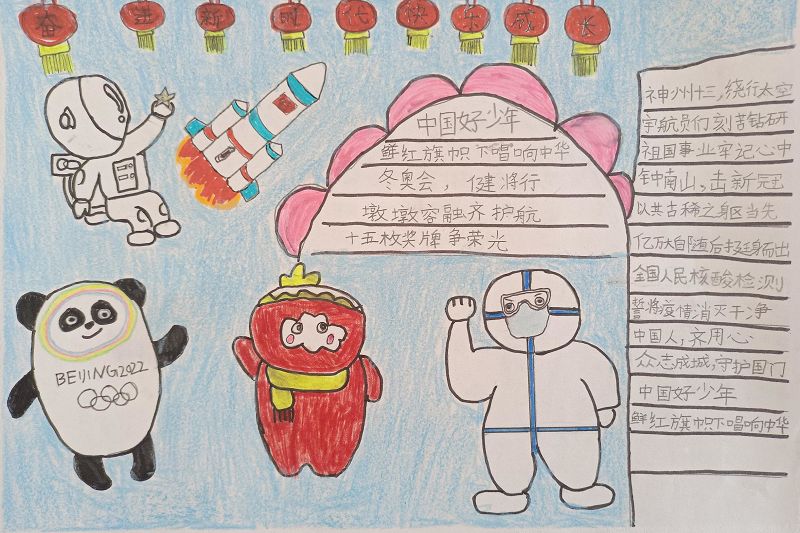 奋进新时代快乐成长
中国好少年
鲜红旗帜下唱响中华
冬奥会，健将行
墩墩容融齐护航
十五枚奖牌争荣光
BEIJING2022
神州十三，绕行太空
宇航员们刻苦钻研
祖国事业牢记心中
钟南山，击新冠
以共古稀之身区当先
亿万大白随后挺身而出
全国人民核酸检测
誓将疫情消灭干净
中国人，齐用心
众志成城，守护国门
中国好少年
鲜红旗帜下唱响中华